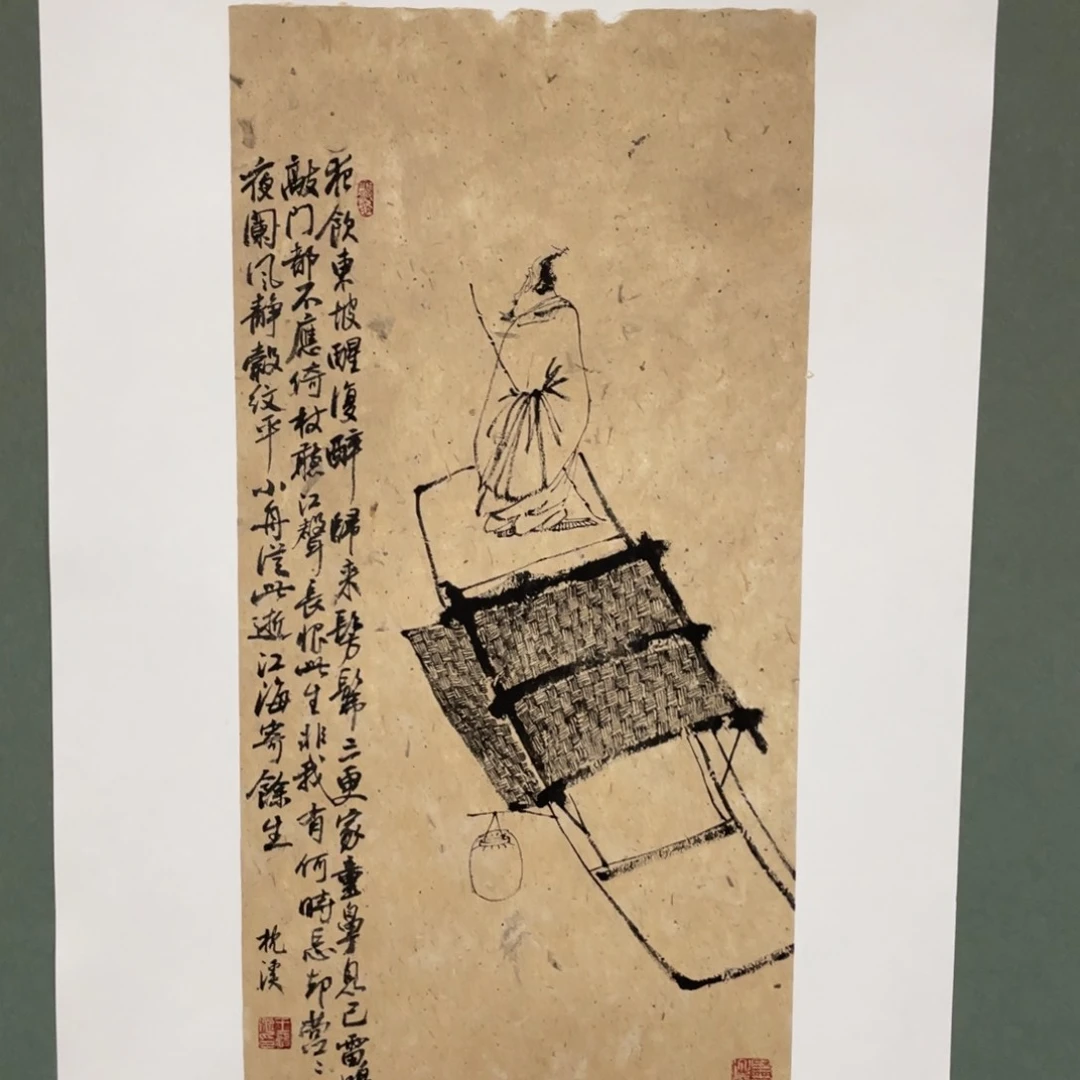 夜飲東坡醒復醉歸来髣髴三更家童鼻息已雷鳴
敲门都不應倚杖聽江聲長恨此生非我有何時忘却營〻
夜闌风靜縠紋平小舟従此逝江海寄餘生
枕溪